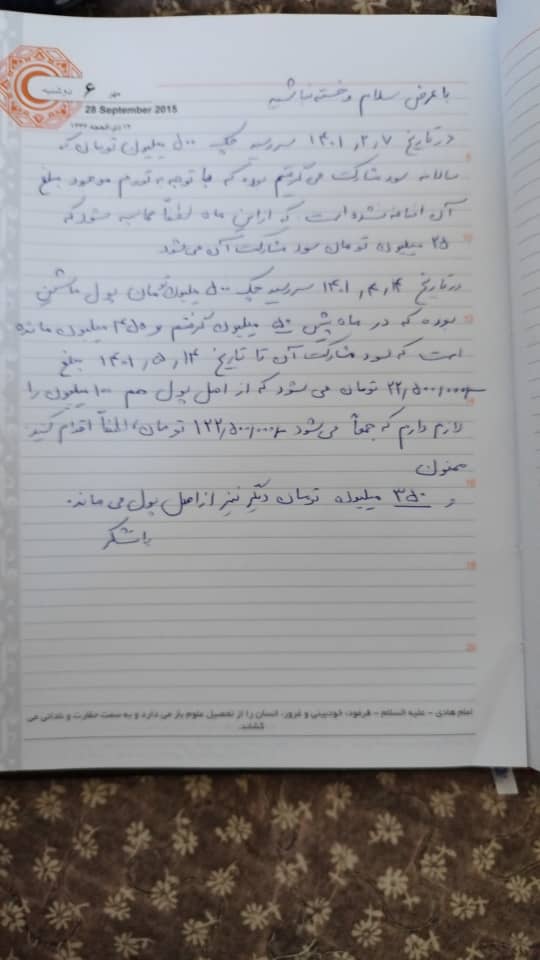 دوشنبه ۶ مهر
28 September 2015
۱۴ ذی الحجه ۱۴۳۶
با عرض سلام و خسته نباشید
در تاریخ ۱۴۰۱,۲,۷ سررسید چک ۵۰۰ میلیون تومان که
سالانه سود مشارکت می گرفتم بوده که با توجه به تورم موجود مبلغ
آن اضافه نشده است که از این ماه لطفاً محاسبه شود که
۲۵ میلیون تومان سود مشارکت آن می شود
در تاریخ ۱۴۰۱,۴,۱۴ سررسید چک ۵۰۰ میلیون تومان پول ماشین
بوده که در ماه پیش ۵۰ میلیون گرفتم و ۴۵۰ میلیون مانده
است که سود مشارکت آن تا تاریخ ۱۴۰۱,۵,۱۴ مبلغ
۲۲,۵۰۰,۰۰۰ تومان می شود که از اصل پول هم ۱۰۰ میلیون را
لازم دارم که جمعاً می شود ۱۲۲,۵۰۰,۰۰۰ تومان، لطفاً اقدام کنید
ممنون
و ۳۵۰ میلیون تومان دیگر نیز از اصل پول می ماند.
باتشکر
امام هادی – علیه السلام – فرمود: خودبینی و غرور، انسان را از تحصیل علوم باز می دارد و به سمت حقارت و نادانی می
کشاند.